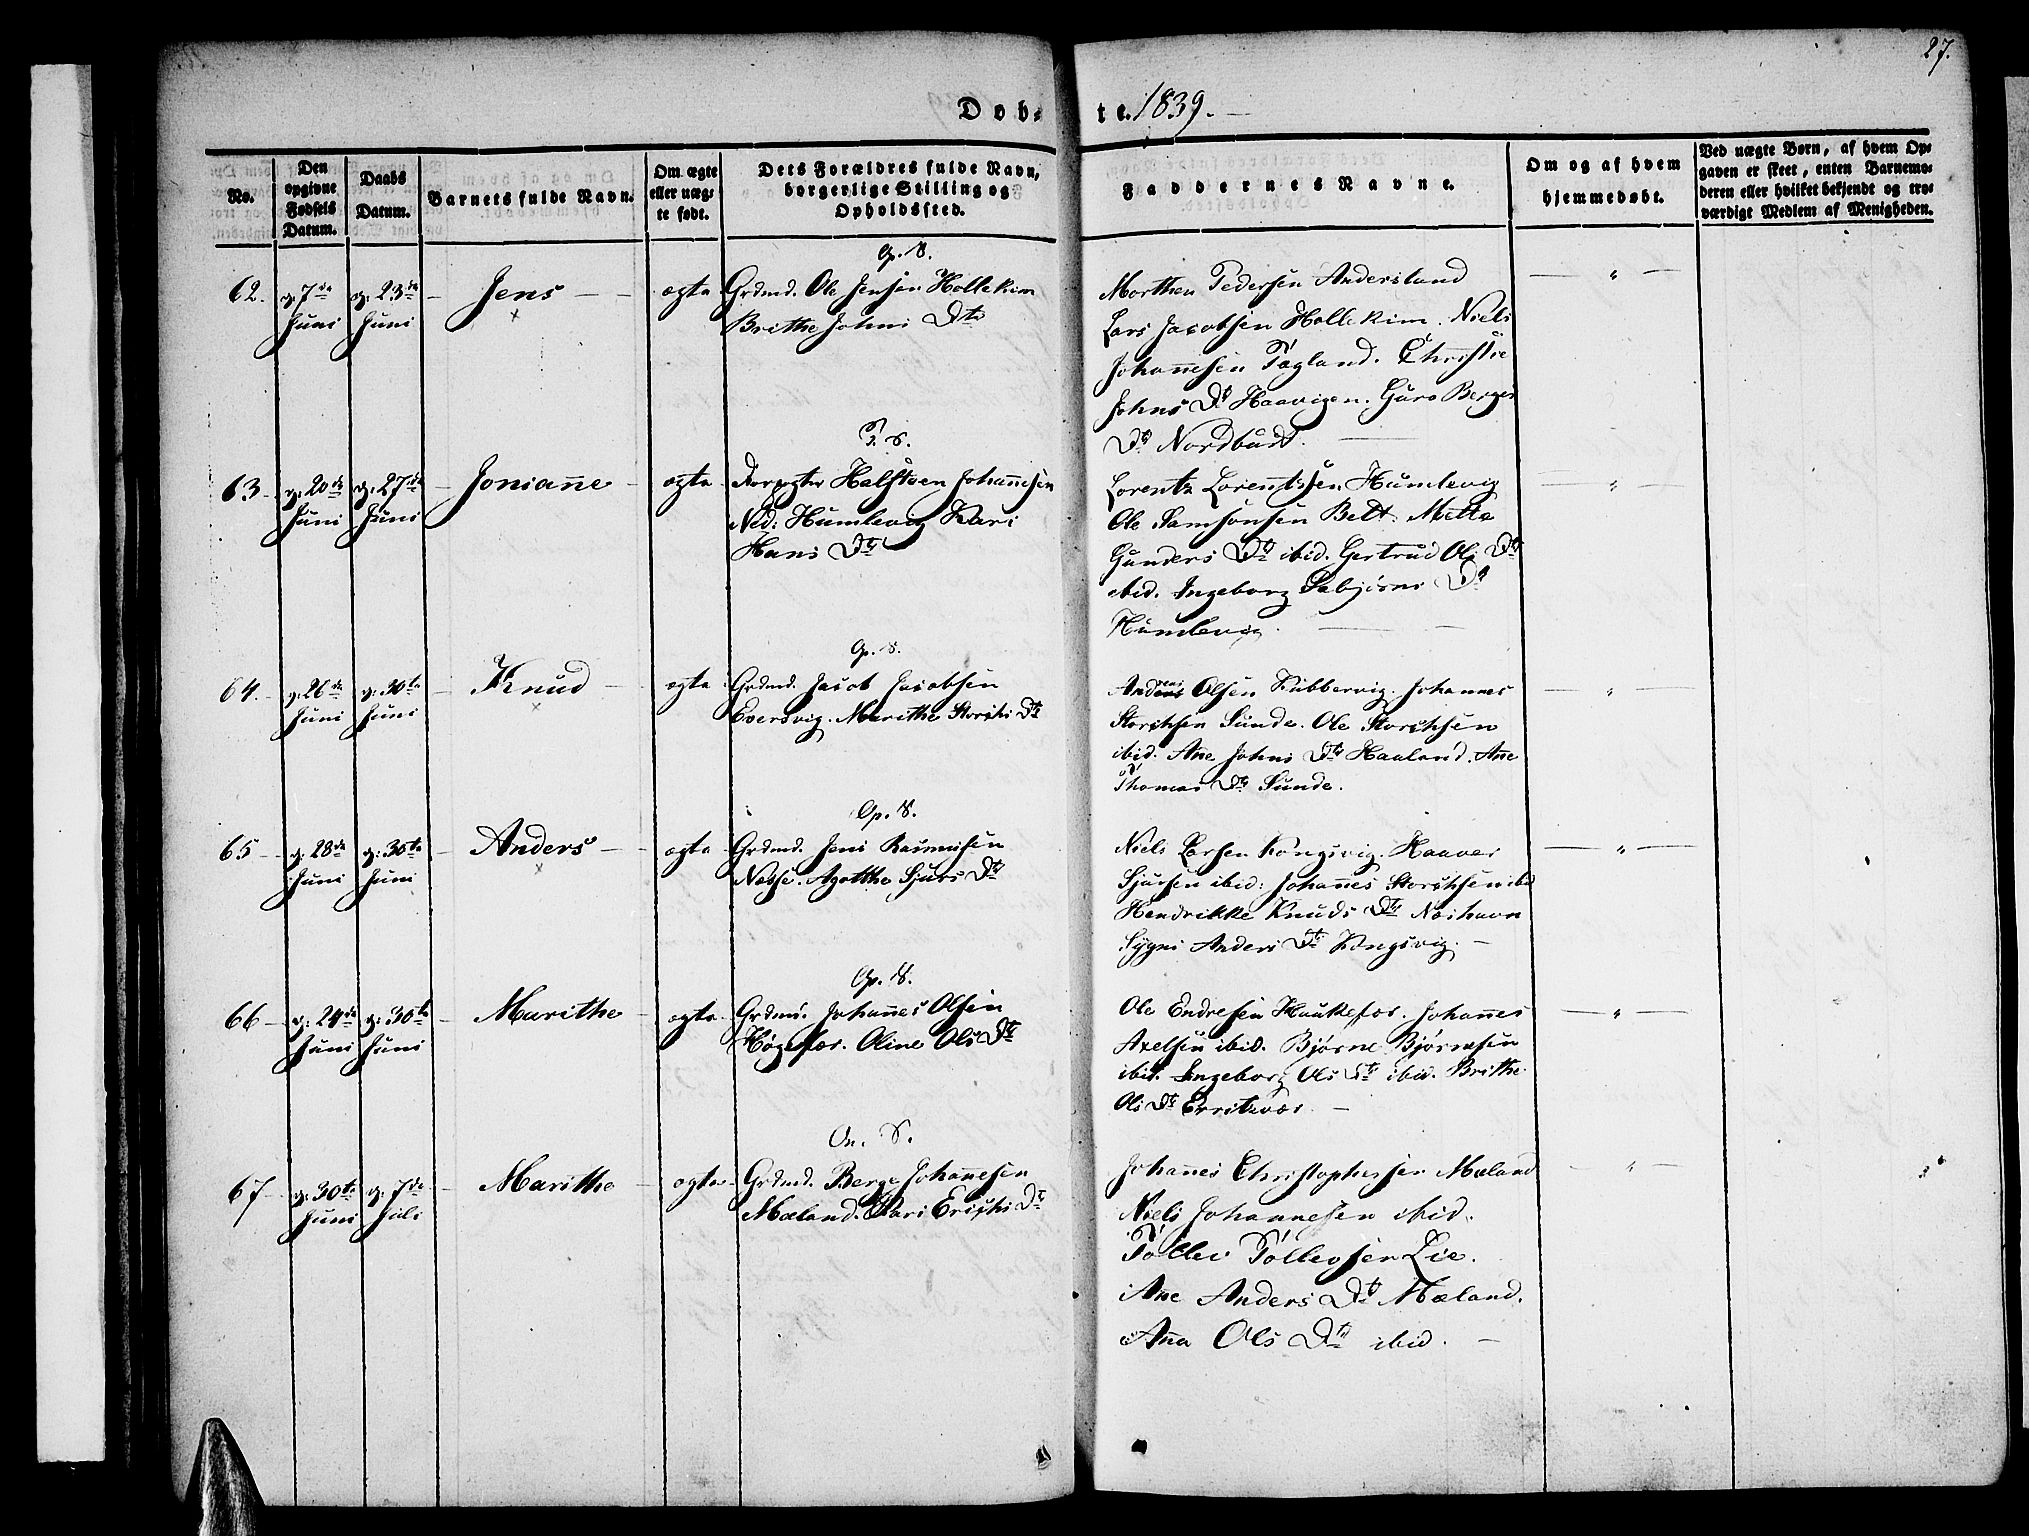 27.
Døb- te. 1839.
No.
Den opgivne Fødsels Datum.
Daabs Datum.
Barnets fulde Navn.
Om ægte eller uægte født.
Dets Forældres fulde Navn, borgerlige Stilling og Opholdssted.
Faddernes Navne.
Om og af hvem hjemmedøbt.
Ved uægte Børn, af hvem Opgaven er skeet, enten Barnemoderen eller hvilket bekjendt og troværdigt Medlem af Menigheden.
Op. S.
62. d: 7de Juni d: 23de Juni – Jens – – ægte
Grdmd. Ole Jensen Hollekim
Brithe Johns Dtr
Morthen Pedersen Andersland
Lars Jacobsen Hollekim. Niels
Johannesen Tøgland. Christie
Johns Dt Haavigen. Guro Berges
Dt Nordbust.
T. S.
63 – d: 20de Juni d: 27de Juni – Joniane – ægte
Halsteen Johannesen
Ned: Humlevig Kari
Hans Dtr
Lorentz Lorentssen Humlevig
Ole Samsonsen Belt. Mette
Gunders Dtr ibid. Gertrud Ols Dtr
ibid. Ingeborg Sabjørns Dt
Humlevig.
Op. S.
64. – d: 26de Juni d: 30te Juni – Knud – ægte
Grdmd. Jacob Jacobsen
Eversvig. Marithe Storchs Dtr
Olsen Kubbervig. Johannes
Storchsen Sunde. Ole Storchsen
ibid. Ane Johns Dtr Haaland. Ane
Thomas Dtr Sunde.
Op. S.
65 – – d: 28de Juni d: 30te Juni – Anders – ægte
Grdmd. Jens Rasmusen
Nesse. Agatthe Sjurs Dtr
Niels Larsen Kongsvig. Haaver
Sjursen ibid: Johannes Storchsen ibid
Hendrikke Knuds Dtr Noshavn
Sygni Anders Dtr Kongsvig. –
Op. S.
66 – d: 24de Juni d: 30te Juni – Marithe – ægte
Grdmd. Johannes Olsen
Høgefær. Oline Ols Dtr
Ole Endresen Haukefær. Johannes
Axelsen ibid. Bjørne Bjørnesen
ibid. Ingeborg Ols Dtr ibid. Brithe
Ols Dtr –
On. S.
67 – d: 30te Juni d: 7de Juli – Marithe – ægte –
Grdmd. Berge Johannesen
Mæland. Kari Erichs Dtr
Johannes Christophersen Mæland
Niels Johannesen ibid.
Tollev Tollevsen Lie.
Ane Anders Dtr Mæland.
Ana Ols Dtr ibid. –